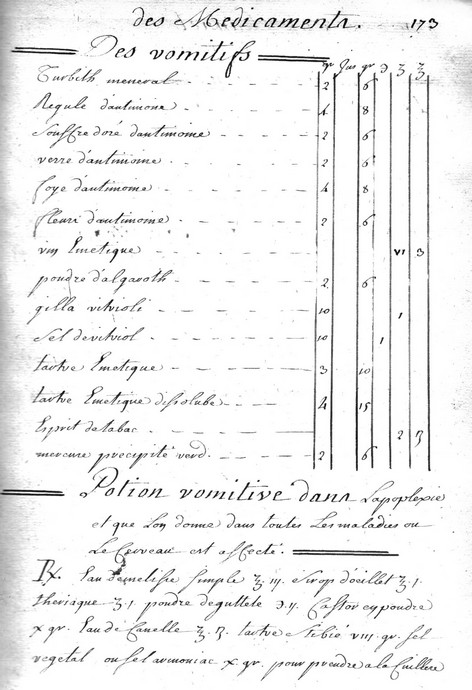 des Medicaments. 173
Des vomitifs
gr Jus gr ℈ ʒ ℥
Turbith meneral 2 6
Regule dantimone 4 8
Souffre doré dantimoine 2 6
verre dantimoine 2 6
foye dantimoine 4 8
fleuri dantimoine 2 6
vin Emetique vi 3
poudre dalgaroth 2 6
gilla vitrioli 10 1
Sel de vitriol 10 1
tartre Emetique 3 10
tartre Emetique dissoluble 4 15
Esprit de tabac 2
mercure precipité verd. 2 6
Potion vomitive dans Lapoplexie
et que Lon donne dans toutes Les maladies ou
Le Cerveau est affecté.
℞. Eau de melisse simple ℥. iii. Sirop d'œillet ℥. i.
theriaque ʒ. i poudre de guttete ℈. ii. Castor en poudre
x gr. Eau de Canelle ʒ. tartre stibié viii gr. Sel
vegetal ou sel armoniac x gr. pour prendre a la Cuillere